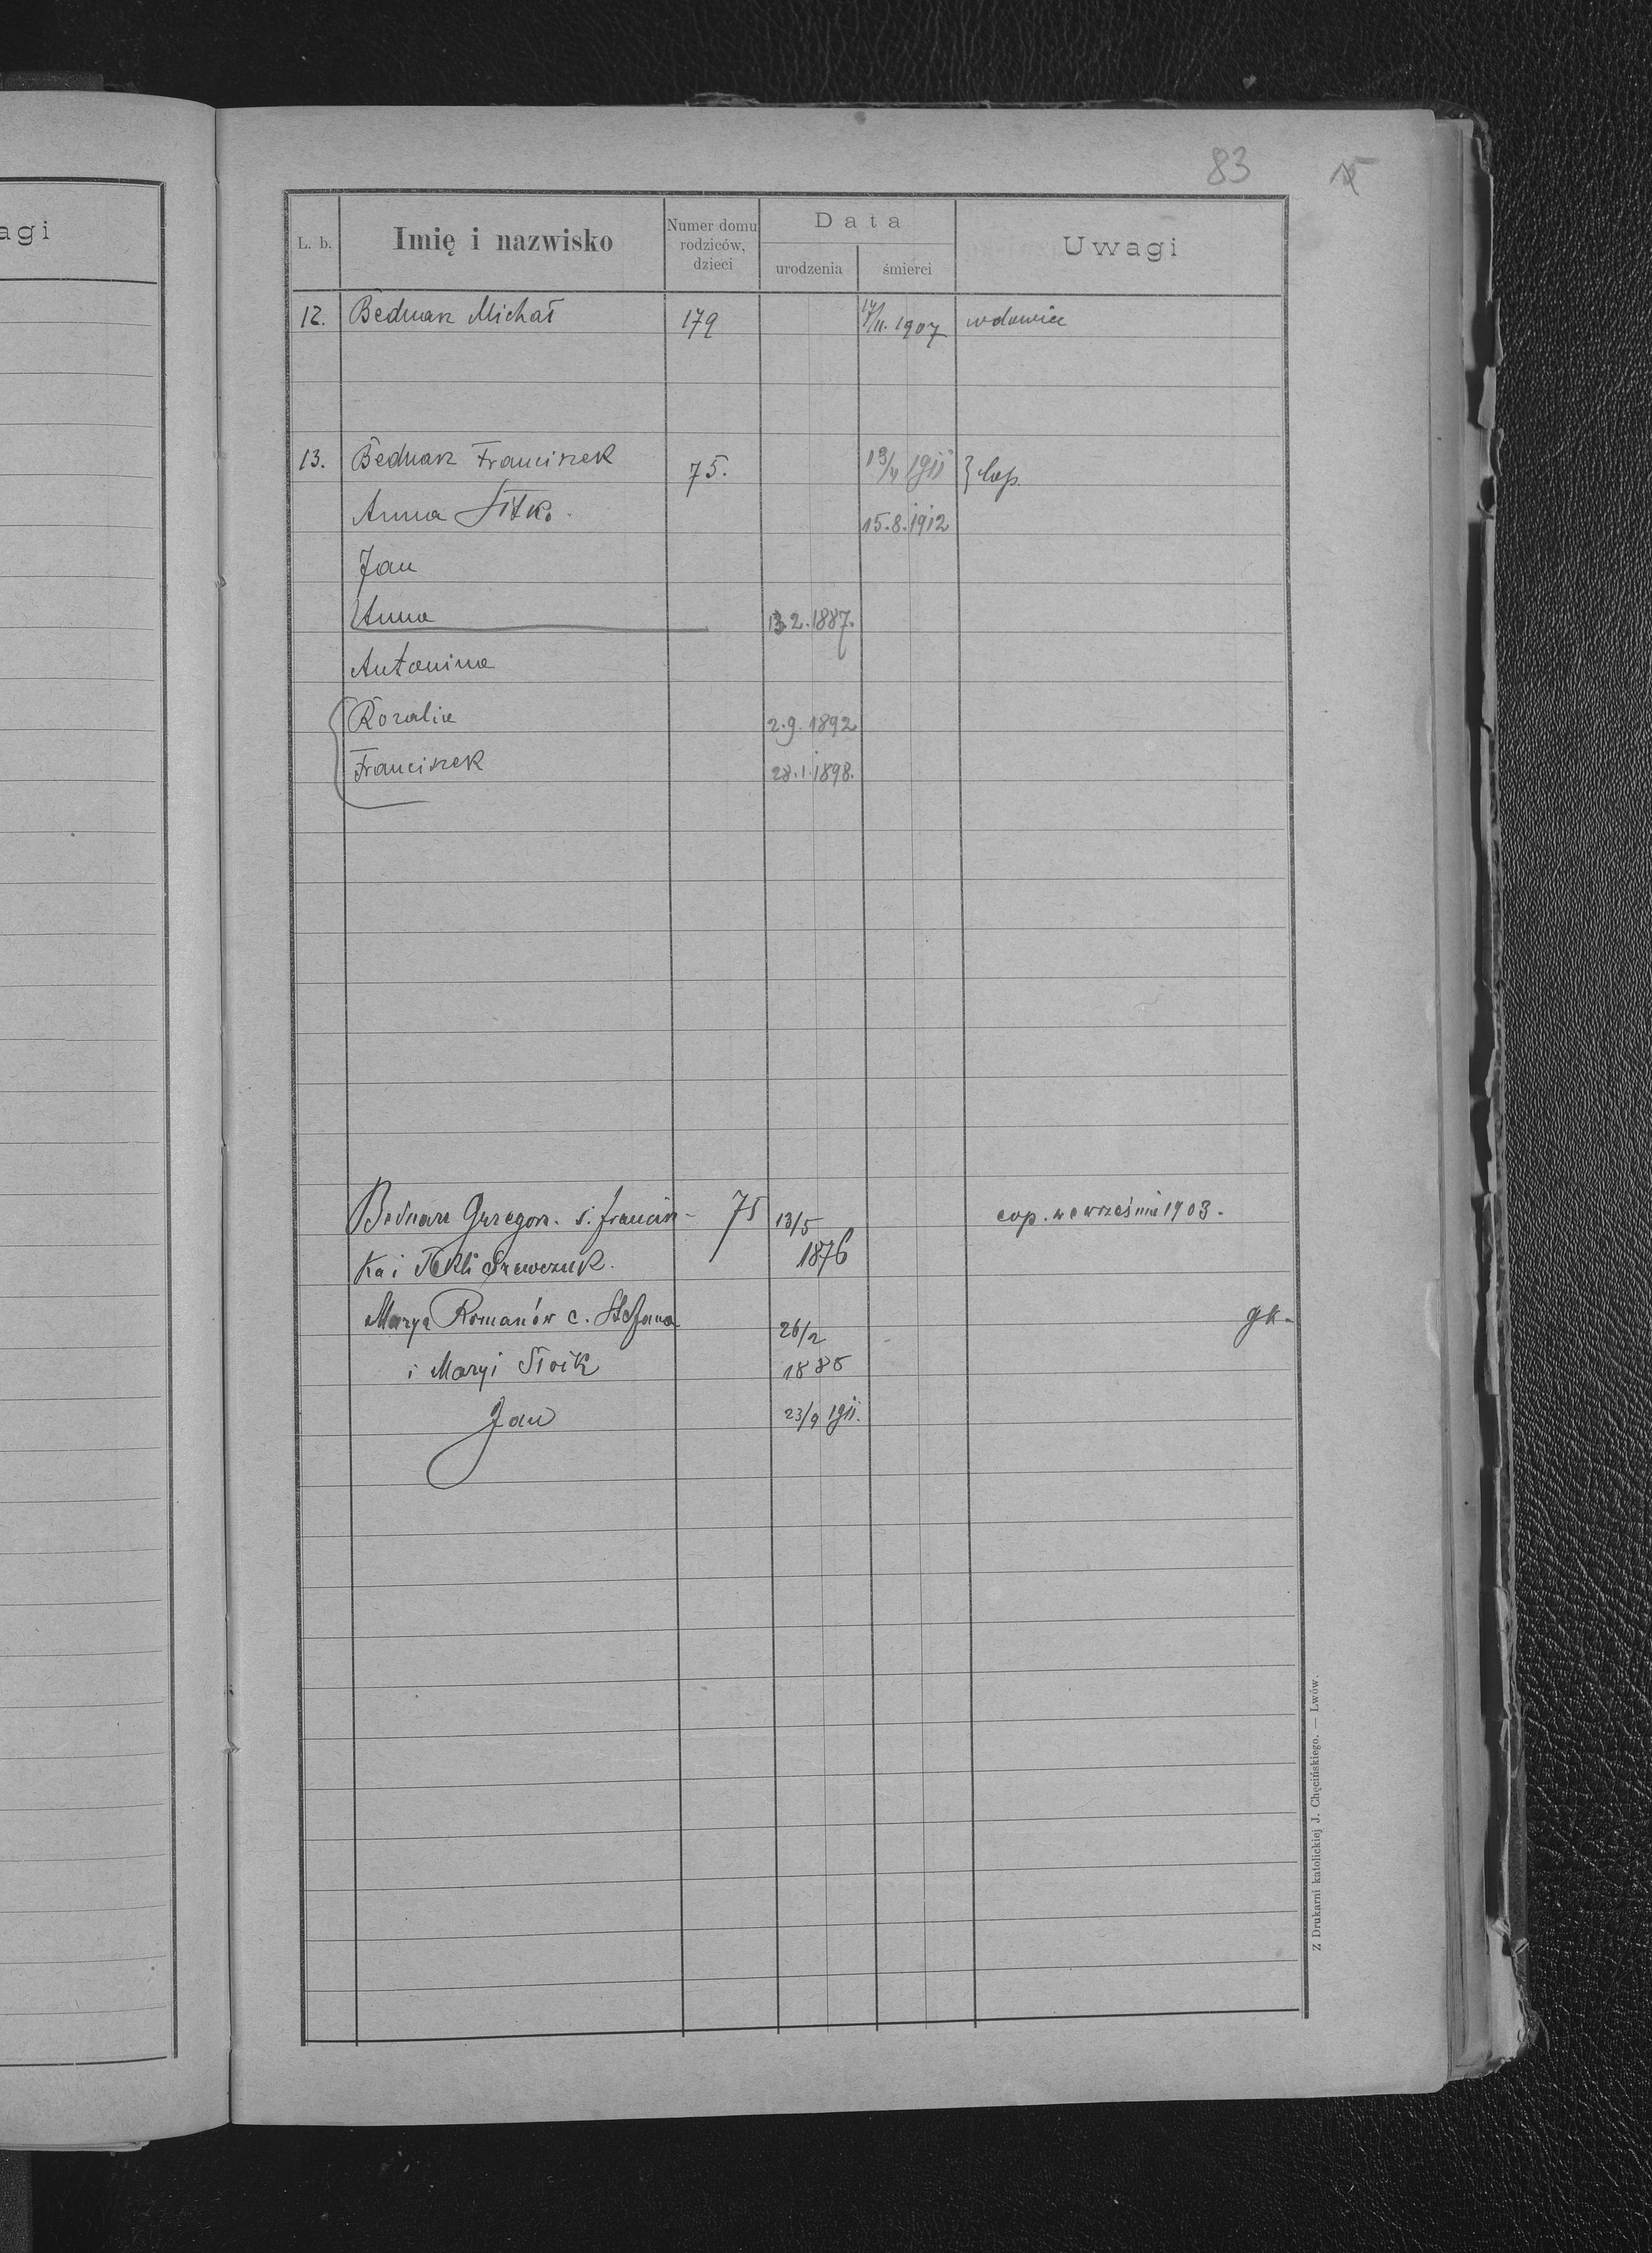 83
agi
L. b. Imię i nazwisko Numer domu rodziców, dzieci Data urodzenia śmierci Uwagi
12. Bednarz Michał 179 /11. 1907 wdowiec
13. Bednarz Franciszek 75. 1911 } Cop.
Anna Sitko. 15.8.1912
Jan
Anna 2.1887.
Antonina
Rozalia 2.9.1892
Franciszek 28.1.1898.
Bednarz Grzegorz. s. Francisz- 75 13/5 cop. we wrześniu 1903.
ka i Tekli Szewczuk. 1876
Marya Romanów c. Stefana 26/2 gk.
i Maryi Stoik
Jan 23/9 1911.
Z Drukarni katolickiej J. Chęcińskiego. — Lwów.